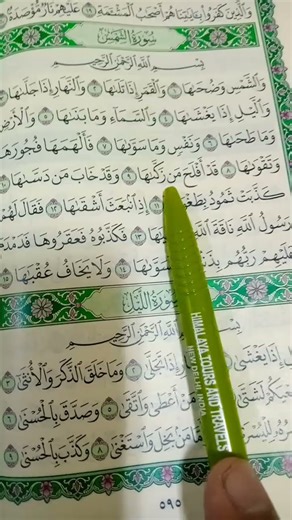 وَالَّذِينَ كَفَرُوا۟ بِـَٔايَٰتِنَا هُمْ أَصْحَٰبُ ٱلْمَشْـَٔمَةِ ١٩ عَلَيْهِمْ نَارٌ مُّؤْصَدَةٌۢ
سُورَةُ الشَّمْسِ
بِسْمِ ٱللَّهِ ٱلرَّحْمَٰنِ ٱلرَّحِيمِ
وَٱلشَّمْسِ وَضُحَىٰهَا ١ وَٱلْقَمَرِ إِذَا تَلَىٰهَا ٢ وَٱلنَّهَارِ إِذَا جَلَّىٰهَا ٣
وَٱلَّيْلِ إِذَا يَغْشَىٰهَا ٤ وَٱلسَّمَآءِ وَمَا بَنَىٰهَا ٥ وَٱلْأَرْضِ
وَمَا طَحَىٰهَا ٦ وَنَفْسٍ وَمَا سَوَّىٰهَا ٧ فَأَلْهَمَهَا فُجُورَهَا
وَتَقْوَىٰهَا ٨ قَدْ أَفْلَحَ مَن زَكَّىٰهَا ٩ وَقَدْ خَابَ مَن دَسَّىٰهَا ١٠
كَذَّبَتْ ثَمُودُ ١١ إِذِ ٱنۢبَعَثَ أَشْقَىٰهَا ١٢ فَقَالَ لَهُمْ
رَسُولُ ٱللَّهِ نَاقَةَ ٱللَّهِ ١٣ فَكَذَّبُوهُ فَعَقَرُوهَا فَدَمْدَمَ
عَلَيْهِمْ رَبُّهُم ١٤ وَلَا يَخَافُ عُقْبَٰهَا ١٥
سُورَةُ اللَّيْلِ
بِسْمِ ٱللَّهِ ٱلرَّحْمَٰنِ ٱلرَّحِيمِ
إِذَا يَغْشَىٰ إِذَا تَجَلَّىٰ ٢ وَمَا خَلَقَ ٱلذَّكَرَ وَٱلْأُنثَىٰٓ ٣
لَشَتَّىٰ مَنْ أَعْطَىٰ وَٱتَّقَىٰ ٥ وَصَدَّقَ بِٱلْحُسْنَىٰ ٦
لِلْيُسْرَىٰ مَنۢ بَخِلَ وَٱسْتَغْنَىٰ ٨ وَكَذَّبَ بِٱلْحُسْنَىٰ ٩
٥٩٥
HIMALAYA TOURS AND TRAVELS
NEW DELHI, INDIA